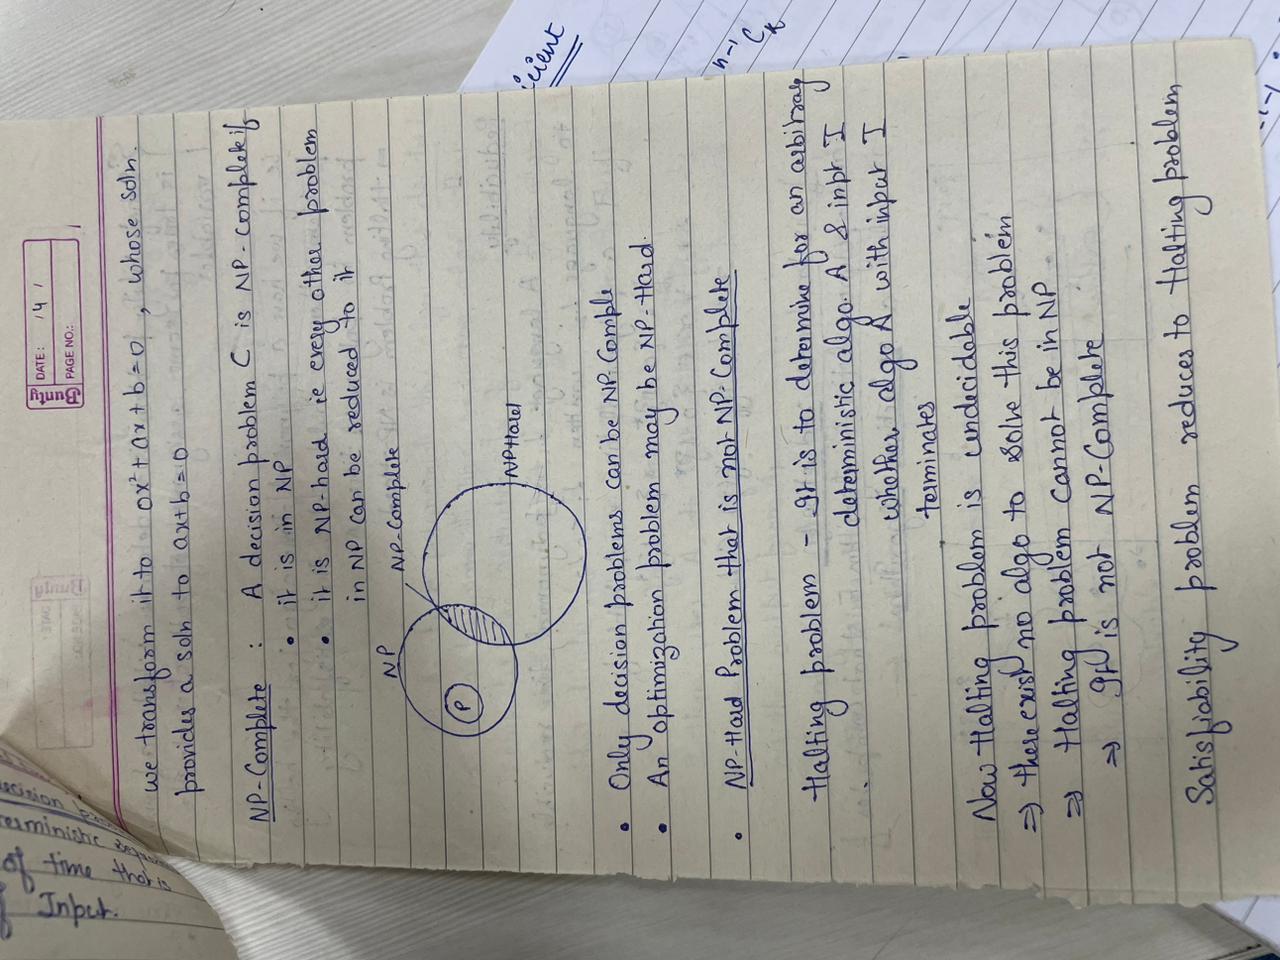 Bunty
DATE: / 4 /
PAGE NO.:
of time that is
Input.
we transform it to 0x² + ax + b = 0 , whose soln.
provides a soln to ax+b=0
NP-Complete : A decision problem C is NP-complete if
• it is in NP
• it is NP-hard ie every other problem
in NP can be reduced to it
NP
NP-Complete
P
NPHard
• Only decision problems can be NP-Comple
• An optimization problem may be NP-Hard.
• NP-Hard Problem that is not NP-Complete
Halting problem - It is to determine for an arbitray
deterministic algo. A & inpt I
whether algo A with input I
terminates
Now Halting problem is undecidable
⇒ there exist no algo to solve this problem
⇒ Halting problem cannot be in NP
⇒ It is not NP-Complete
Satisfiability problem reduces to Halting problem
icient
n-1 C k